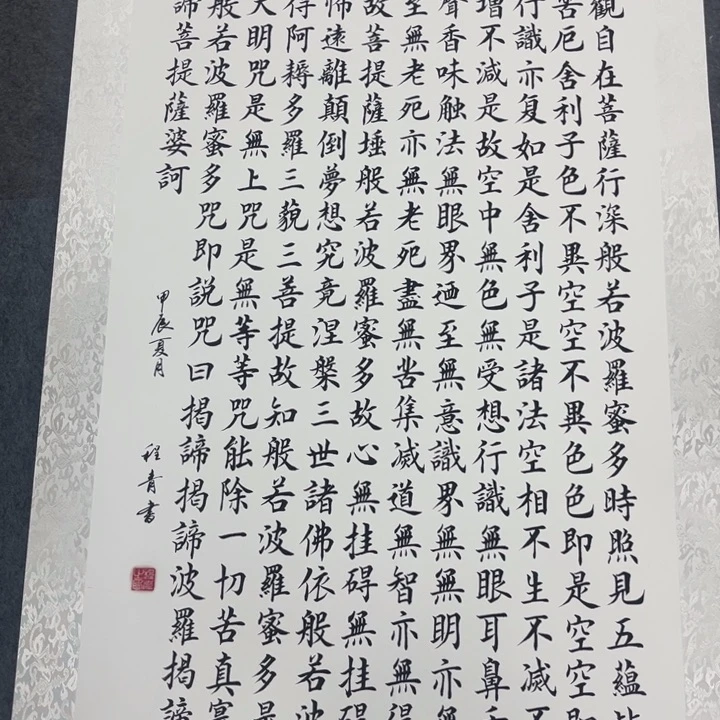 觀自在菩薩行深般若波羅蜜多時照見五蘊
苦厄舍利子色不異空空不異色色即是空空即
行識亦复如是舍利子是諸法空相不生不滅不
增不減是故空中無色無受想行識無眼耳鼻舌
聲香味触法無眼界迺至無意識界無無明亦無
至無老死亦無老死盡無苦集滅道無智亦無得
故菩提薩埵般若波羅蜜多故心無挂碍無挂碍
怖遠離顛倒夢想究竟涅槃三世諸佛依般若波
得阿耨多羅三藐三菩提故知般若波羅蜜多是
大明咒是無上咒是無等等咒能除一切苦真實
般若波羅蜜多咒即說咒曰揭諦揭諦波羅揭諦
諦菩提薩婆訶
甲辰夏月
程青書